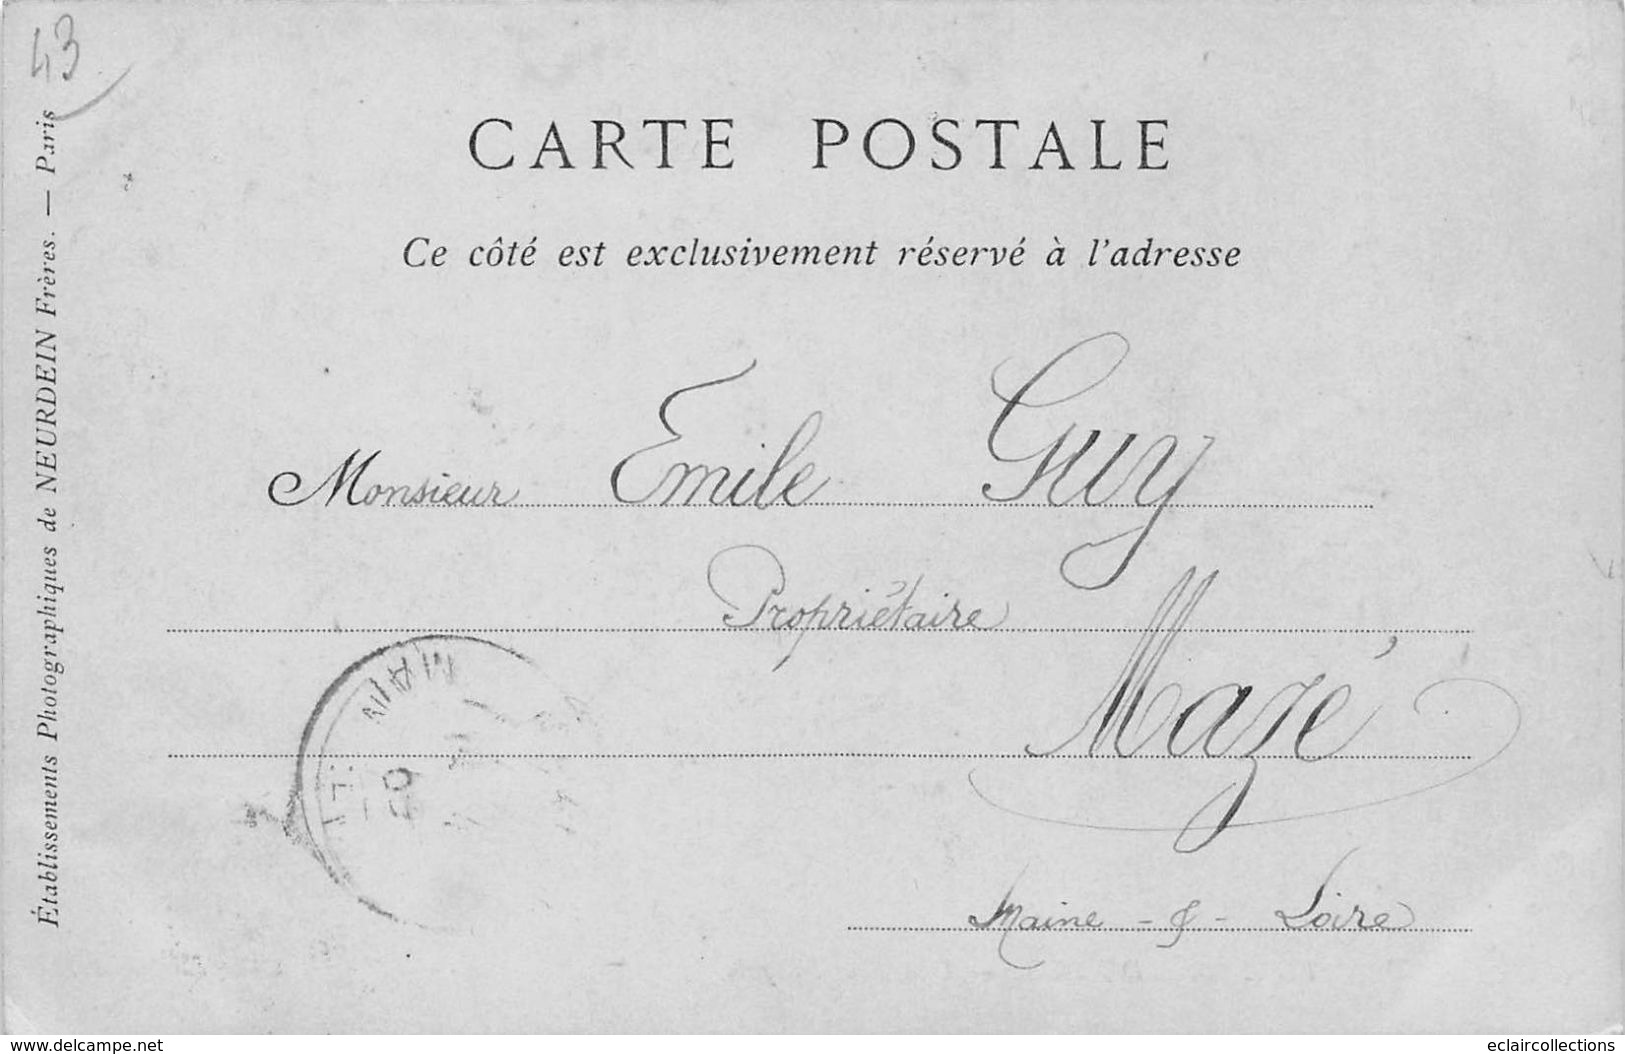 43
CARTE POSTALE
Ce côté est exclusivement réservé à l'adresse
Monsieur Emile Guy
Propriétaire
Mazé
Maine - & - Loire
Établissements Photographiques de NEURDEIN Frères. — Paris
MAIN
www.delcampe.net
eclaircollections